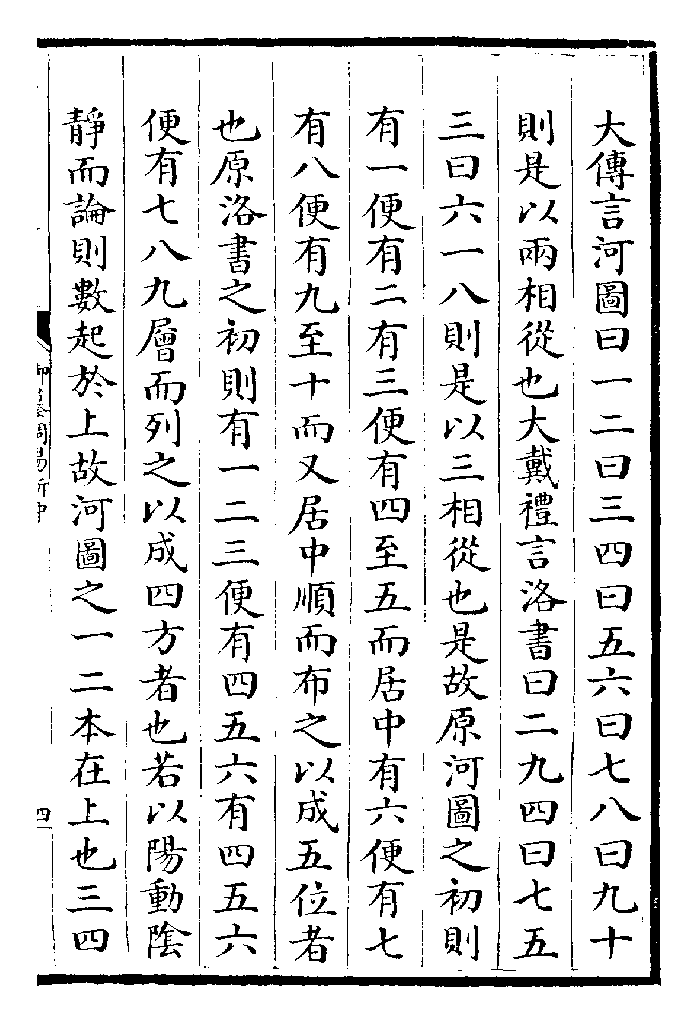 大傳言河圖曰一二曰三四曰五六曰七八曰九十
則是以兩相從也大戴禮言洛書曰二九四曰七五
三曰六一八則是以三相從也是故原河圖之初則
有一便有二有三便有四至五而居中有六便有七
有八便有九至十而又居中順而布之以成五位者
也原洛書之初則有一二三便有四五六有四五六
便有七八九層而列之以成四方者也若以陽動陰
靜而論則數起於上故河圖之一二本在上也三四
周易折中
四